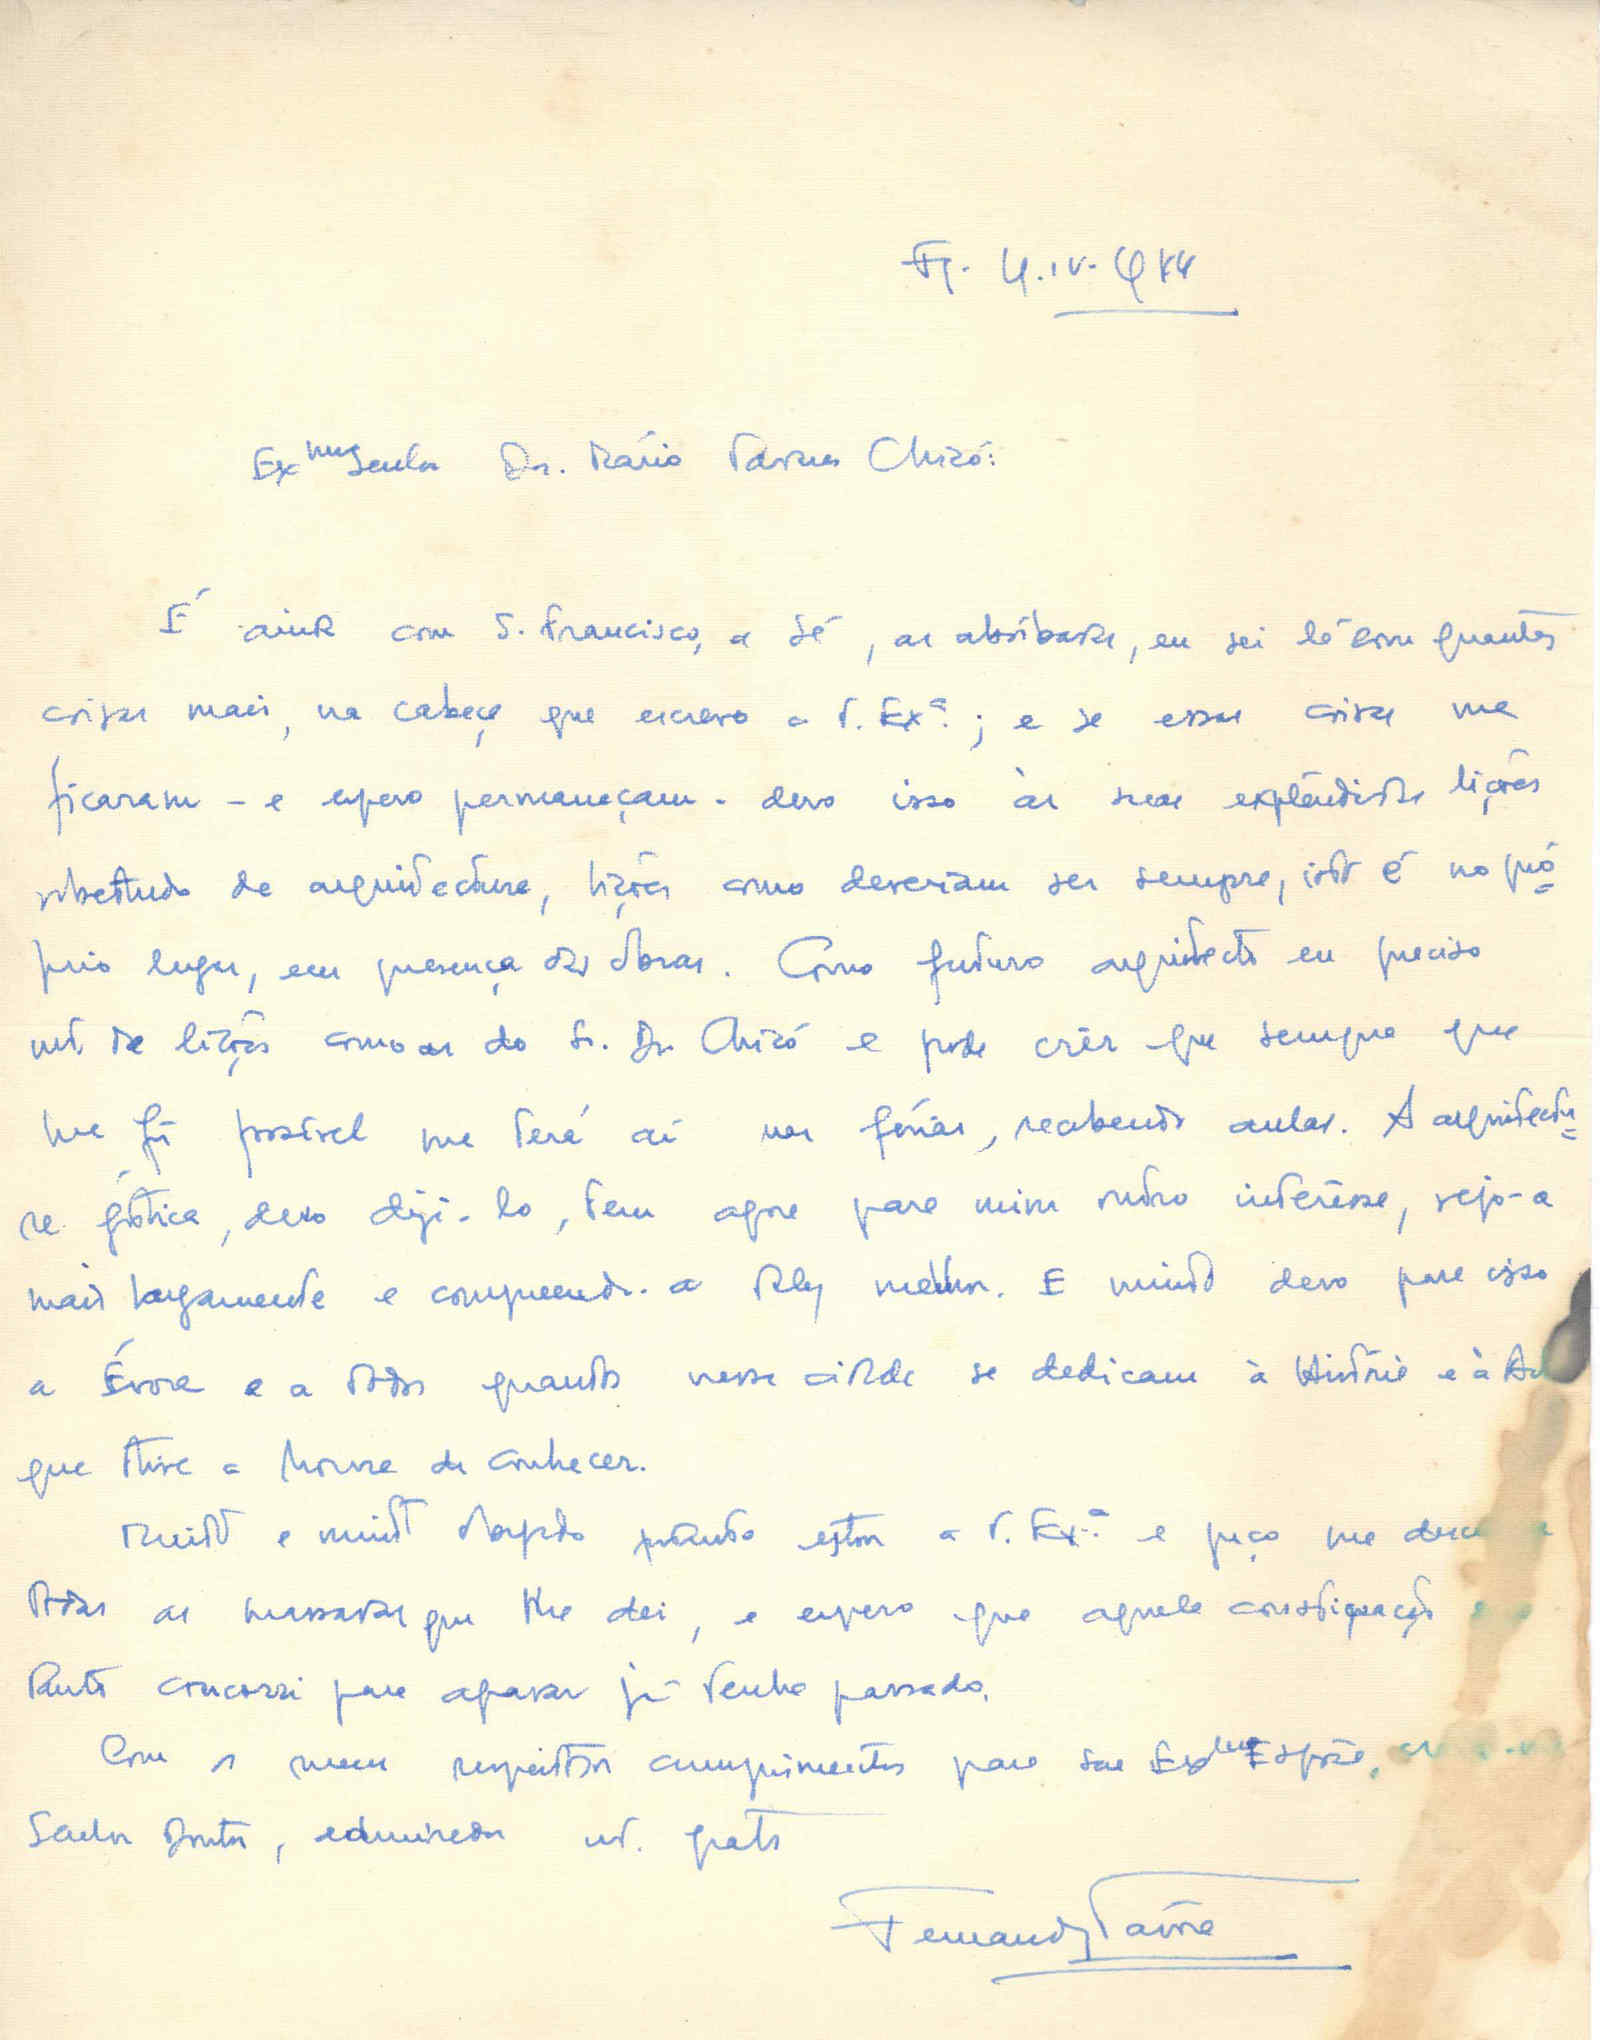 4.IV.944
Exmo Senhor Dr. Mário Tavares Chicó:
É ainda com S. Francisco, a Sé, as abóbadas, eu sei lá com quantas
coisas mais, na cabeça que escrevo a V. Exª.; e se essas coisas me
ficaram - e espero permaneçam - devo isso às suas explêndidas lições
sobretudo de arquitectura, lições como deveriam ser sempre, isto é no pró=
prio lugar, em presença das obras. Como futuro arquitecto eu preciso
mt. de lições como as do Sr. Dr. Chicó e pode crêr que sempre que
me fôr possível me terá aí nas férias, recebendo aulas. A arquitectu=
ra gótica, devo dizê-lo, tem agora para mim outro interêsse, vejo-a
mais largamente e compreendo-a talvez melhor. E muito devo para isso
a Évora e a todos quantos nessa cidade se dedicam à História e à
que tive a honra de conhecer.
Muito e muito obrigado portanto estou a V. Exª. e peço me
todas as massadas que lhe dei, e espero que aquela constipação
tanto concorri para apanhar já tenha passado.
Com os meus respeitosos cumprimentos para sua Exma Espôsa,
Senhor Doutor, admirador mt. grato
Fernando Távora